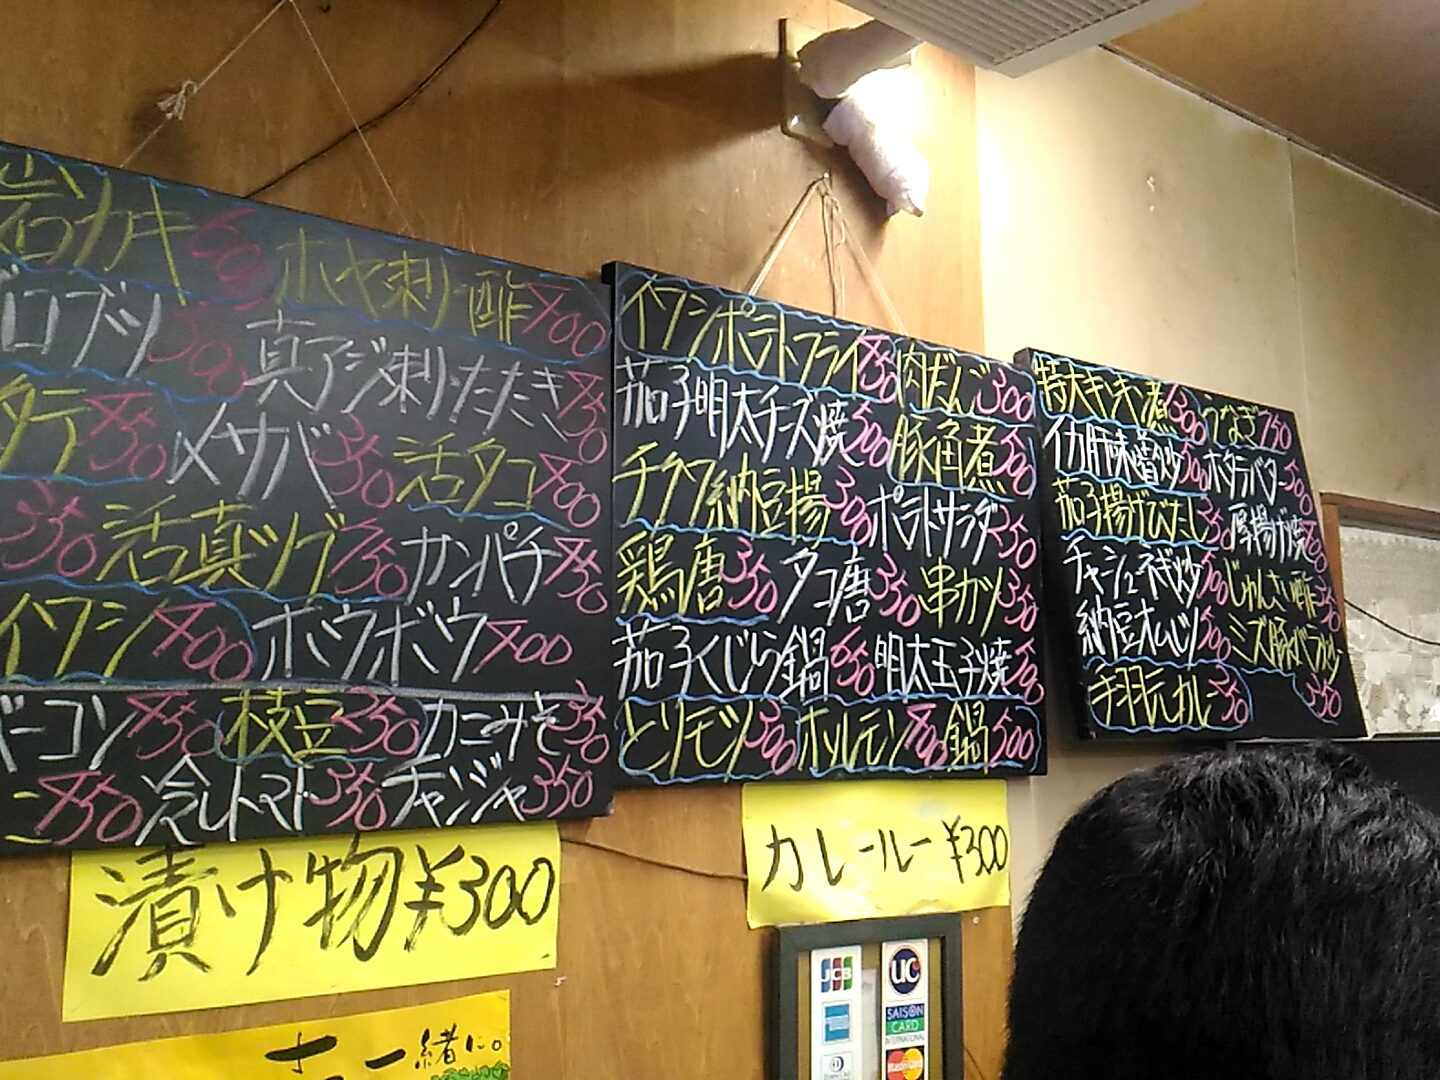 岩カキ600 ホヤ刺 酢400
ロブツ 真アジ刺・たたき450
タテ450 〆サバ350 活タコ400
350 活真ツブ750 カンパチ450
イワシ400 ホウボウ400
ーコン450 枝豆250 カニみそ350
450 冷しトマト350 チャンジャ350
イワシポテトフライ 肉だんご300
茄子明太チーズ焼500 豚角煮500
チクワ納豆揚300 ポテトサラダ350
鶏唐350 タコ唐350 串カツ350
茄子くじら鍋650 明太玉子焼500
とりモツ300 ホルモン400 鍋500
特大きんき煮 うなぎ750
イカ肝味噌炒 ホタテバター500
茄子揚げびたし350 厚揚げ焼
チャーシューネギ炒 じゅんさい酢
納豆オムレツ500 ミズ豚バラ炒
手羽元カレー350 350
漬け物¥300
カレールー¥300
一緒に。
JCB UC
SAISON CARD INTERNATIONAL
MasterCard